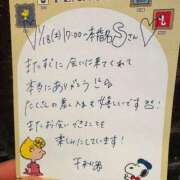 1/18(土)17:00〜本指名Sさん
またすぐに会いに来てくれて
本当にありがとう!!
たくさんの差し入れも嬉しいです
またお会いできることを
楽しみにしています!